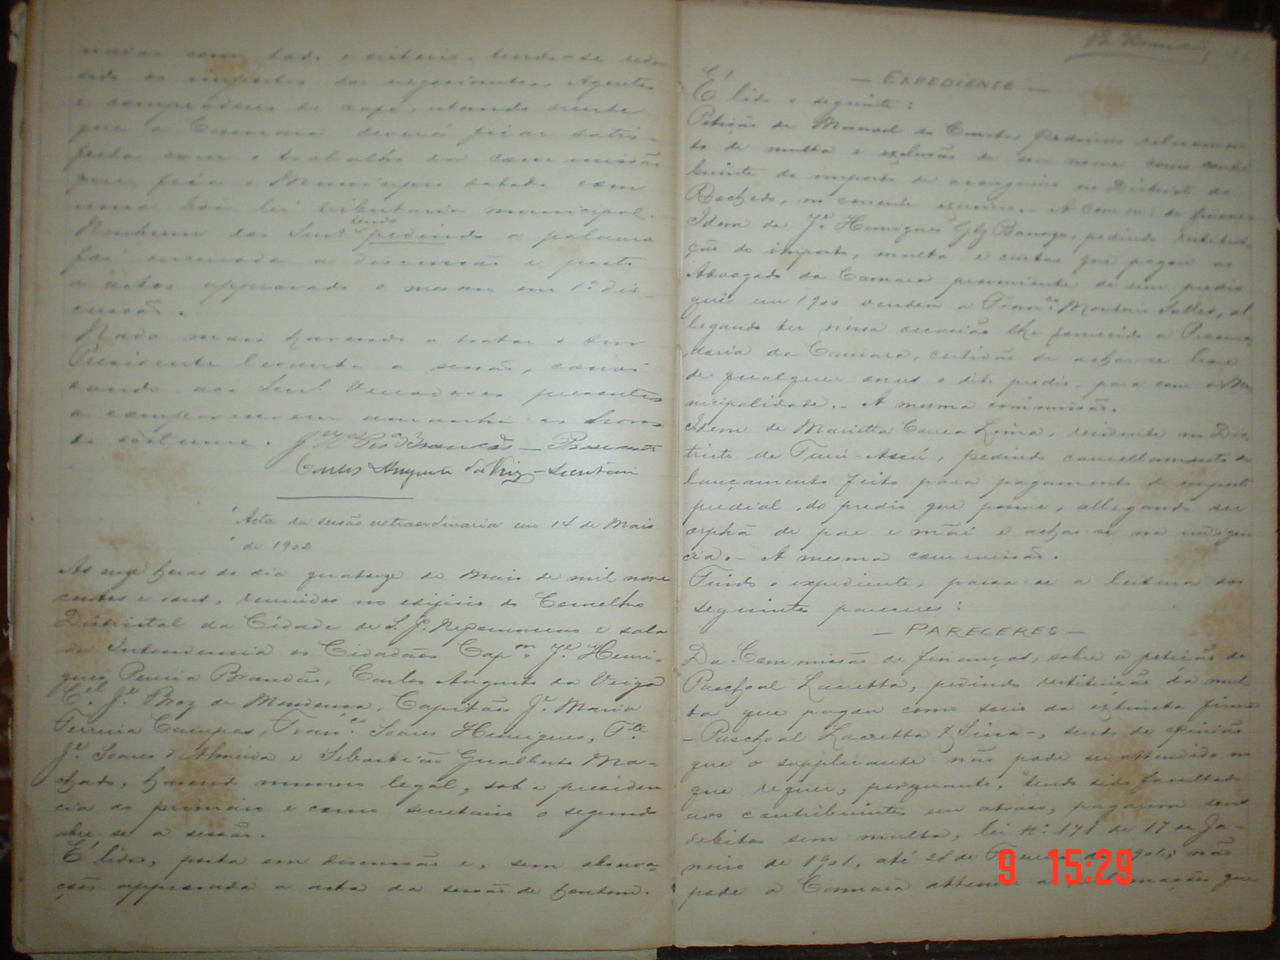 com todo o criterio, tendo-se
os impostos dos negociantes, Agentes
e compradores de café,
que a Camara deverá ficar satis-
feita com o trabalho da commissão
que fica o Municipio dotado com
uma boa lei tributaria municipal.
Nenhum dos Snrs. tendo pedindo a palavra
foi encerrada a discussão e posto
a votos approvado o mesmo em 1ª dis-
cussão.
Nada mais havendo a tratar o Snr
Presidente levanta a sessão, convi-
dando aos Snrs. Vereadores presentes
a comparecerem amanhã as horas
do costume. Brandão - Presidente
Carlos Augusto da Veiga - Secretario
Acta da sessão extraordinaria em 14 de Maio
de 1902
As onze horas do dia quatorze de Maio de mil nove
centos e dous, reunidos no edificio do Conselho
Districtal da Cidade de S. J. Nepomuceno e sala
da Intendencia os Cidadãos Capm. Je. Henri-
ques Pereira Brandão, Carlos Augusto da Veiga
Cel. Je. Braz de Mendonça, Capitão Je. Maria
Ferreira Campos, Franco. Soares Henriques, Tte.
Je. Soares d'Almeida e Sebastião Gualberto Ma-
chado, havendo numero legal, sob a presiden
cia do primeiro e como secretario o segundo
abre-se a sessão.
É lida, posta em discussão e, sem observa-
ções approvada a acta da sessão de hontem.
- EXPEDIENTE -
É lido o seguinte:
Petição de Manoel da Costa, pedindo relevamen
to de multa e exclusão de seu nome como contri
buinte do imposto de no Districto do
Rochedo, no corrente exercicio. - A Com. de finanças
Idem de Je. Henriques pedindo restitui-
ção do imposto, multa e custas que pagou ao
Advogado da Camara proveniente de um predio
que em 1900 vendeu a Franco. Monteiro Salles, al
legando ter nessa occasião lhe fornecido a
da Camara, certidão de achar-se livre
de qualquer onus o dito predio, para com a Mu
nicipalidade. - A mesma commissão.
Idem de Marietta Corrêa Lima, residente no Dis
tricto de Tury-Assú, pedindo cancellamento do
lançamento feito para pagamento do imposto
predial, do predio que possue, allegando ser
orphã de pae e mãi e achar-se na indigen
cia. - A mesma commissão.
Findo o expediente, passa-se a leitura dos
seguintes pareceres:
- PARECERES -
Da Commissão de finanças, sobre a petição de
Paschoal Lacretta, pedindo restituição da mul
ta que pagou como socio da extincta firma
- Paschoal Lacretta & -, sendo de opinião
que o supplicante não pode ser attendido no
que requer, porquanto, tendo sido facultado
aos contribuintes em atraso, pagarem seus
debitos sem multa, lei Nº 171 de 17 de Ja-
neiro de 1901, até 28 de não
pode a Camara attender a que
9 15:29